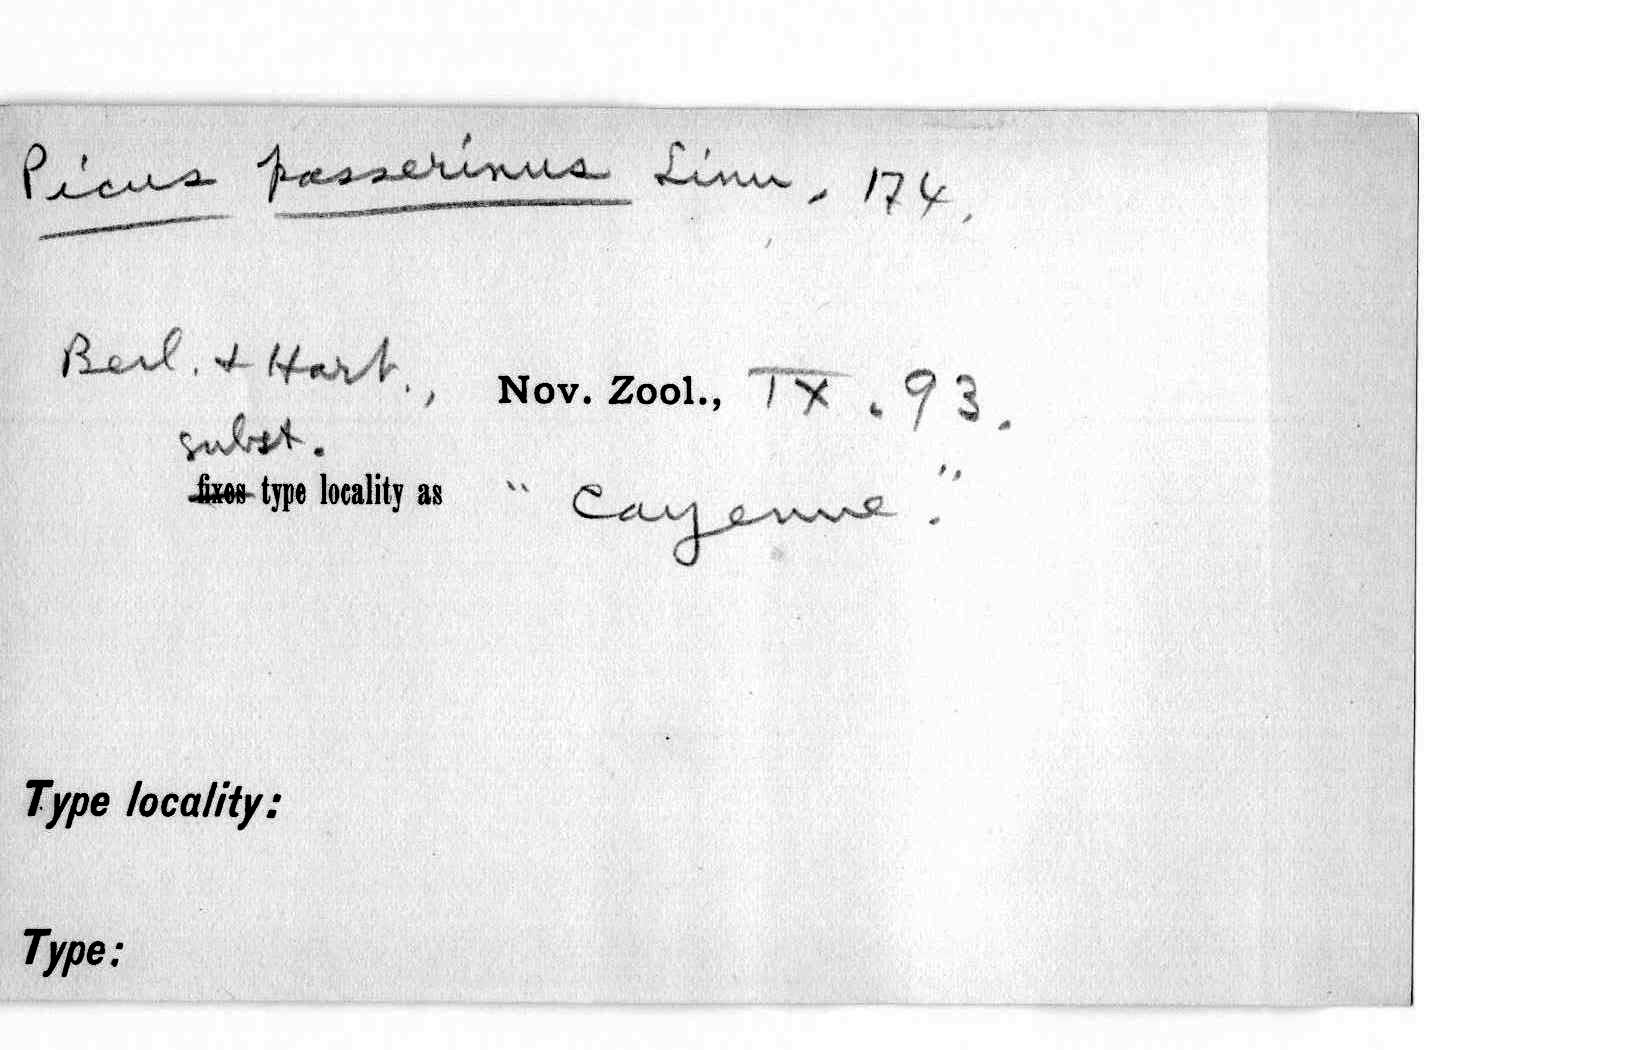 Picus passerinus Linn, 174.
Berl. + Hart., Nov. Zool., IX. 93.
subst.
fixes type locality as "Cayenne".
Type locality:
Type: